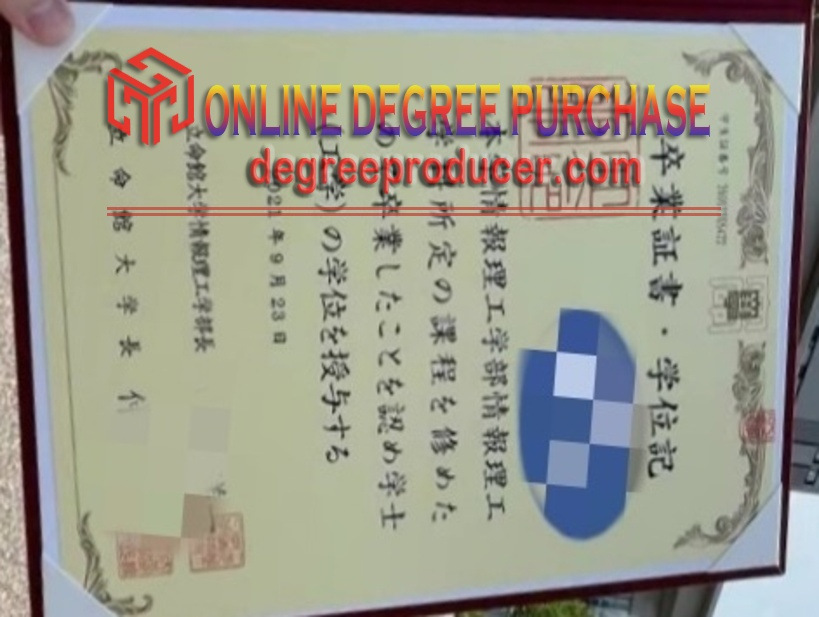 ONLINE DEGREE PURCHASE
degreeproducer.com
卒業証書・学位記
情報理工学部情報理工
所定の課程を修めた
卒業したことを認め学士
(工学)の学位を授与する
21年9月23日
立命館大学情報理工学部長
立命館大学長